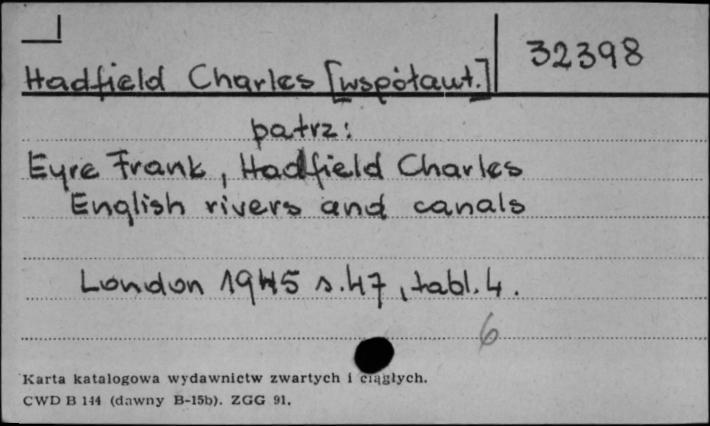 32398
Hadfield Charles [współaut.]
patrz:
Eyre Frank, Hadfield Charles
English rivers and canals
London 1945 s.47, tabl.4.
6
Karta katalogowa wydawnictw zwartych i ciągłych.
CWD B 144 (dawny B-15b). ZGG 91.